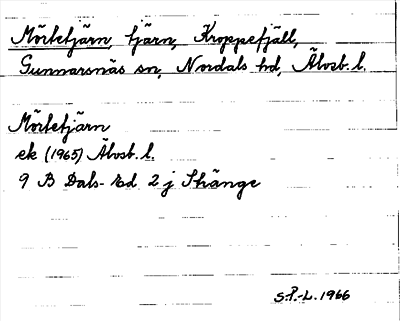 Mörtetjärn, tjärn, Kroppefjäll,
Gunnarsnäs sn, Nordals hd, Älvsb. l.
Mörtetjärn
ek (1965) Älvsb. l.
9 B Dals-Ed 2 j Stränge
S.P.-L. 1966